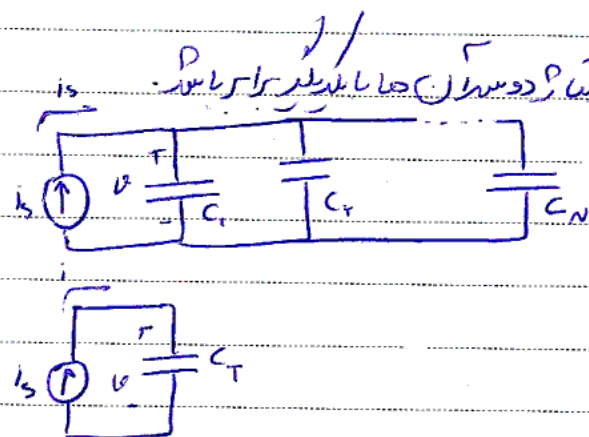 ولتاژ دو سر آن ها با یکدیگر برابر باشد.
is
is + v - C₁ C₂ C_N
i
is + v - C_T